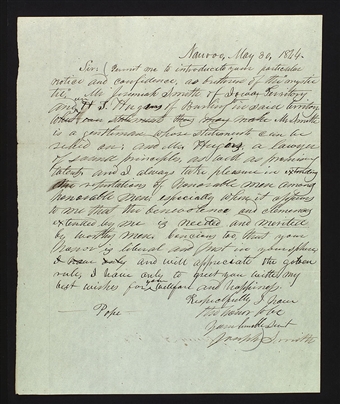 Nauvoo, May 30, 1844.
Sir, Permit me to introduce to your particular
notice and confidence, as brethren of the "mystic
tie," Mr Jeremiah Smith of Iowa Territory
and H. T. Hugins of Burlington said territory
may make Mr Smith
is a gentleman whose statements can be
relied on; and Mr Hugins, a lawyer
of sound principles, as well as promising
talents, and I always take pleasure in extending
the reputations of honorable men among
honorable men: especially when it appears
to me that the benevolence and clemency
extended by me is needed and merited
by worthy men. Conscious too, that your
honor is liberal and just in your sphere
and will appreciate the golden
rule, I have only to greet you with my
best wishes for your welfare and happiness.
Respectfully I have
the honor to be
Your humble Servt
Joseph Smith
Pope